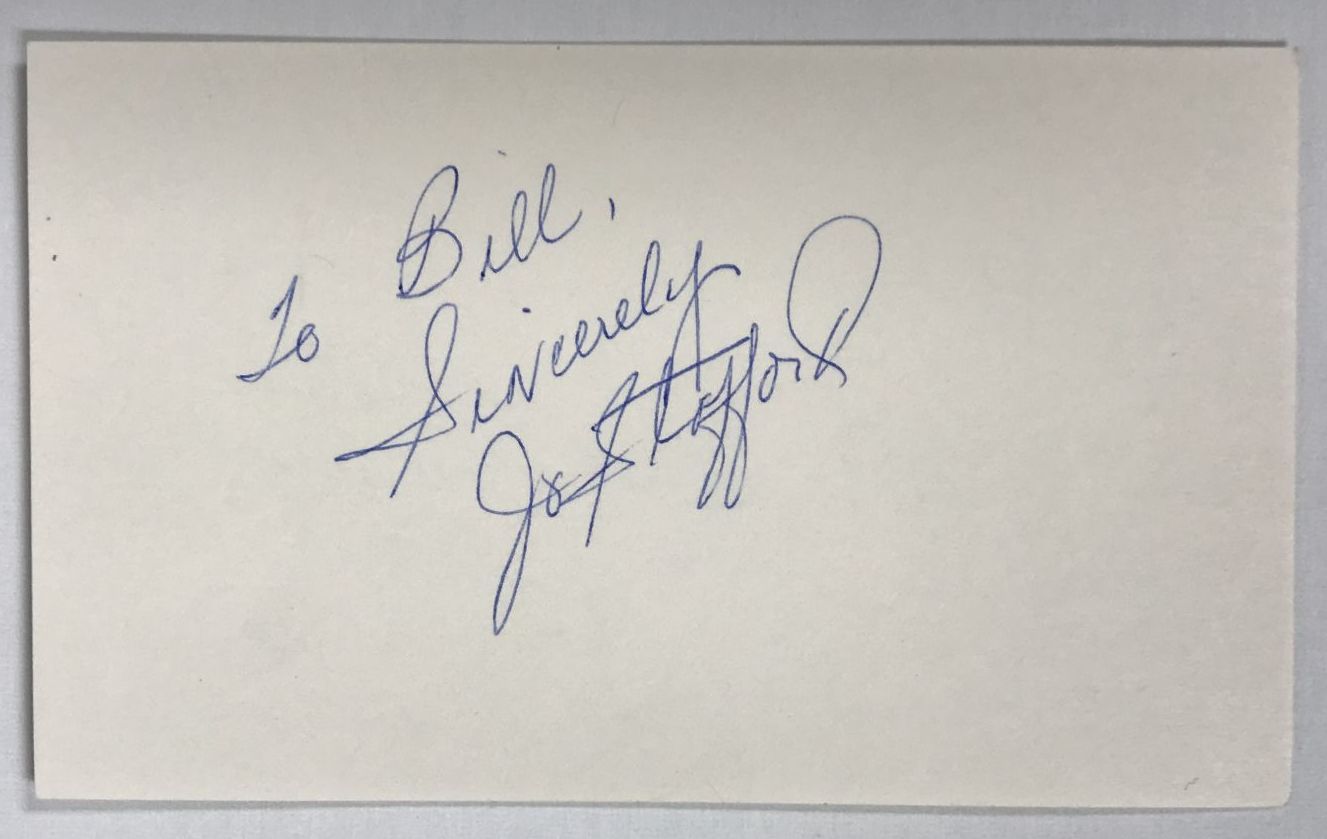 To Bill,
Sincerely
Jo Stafford